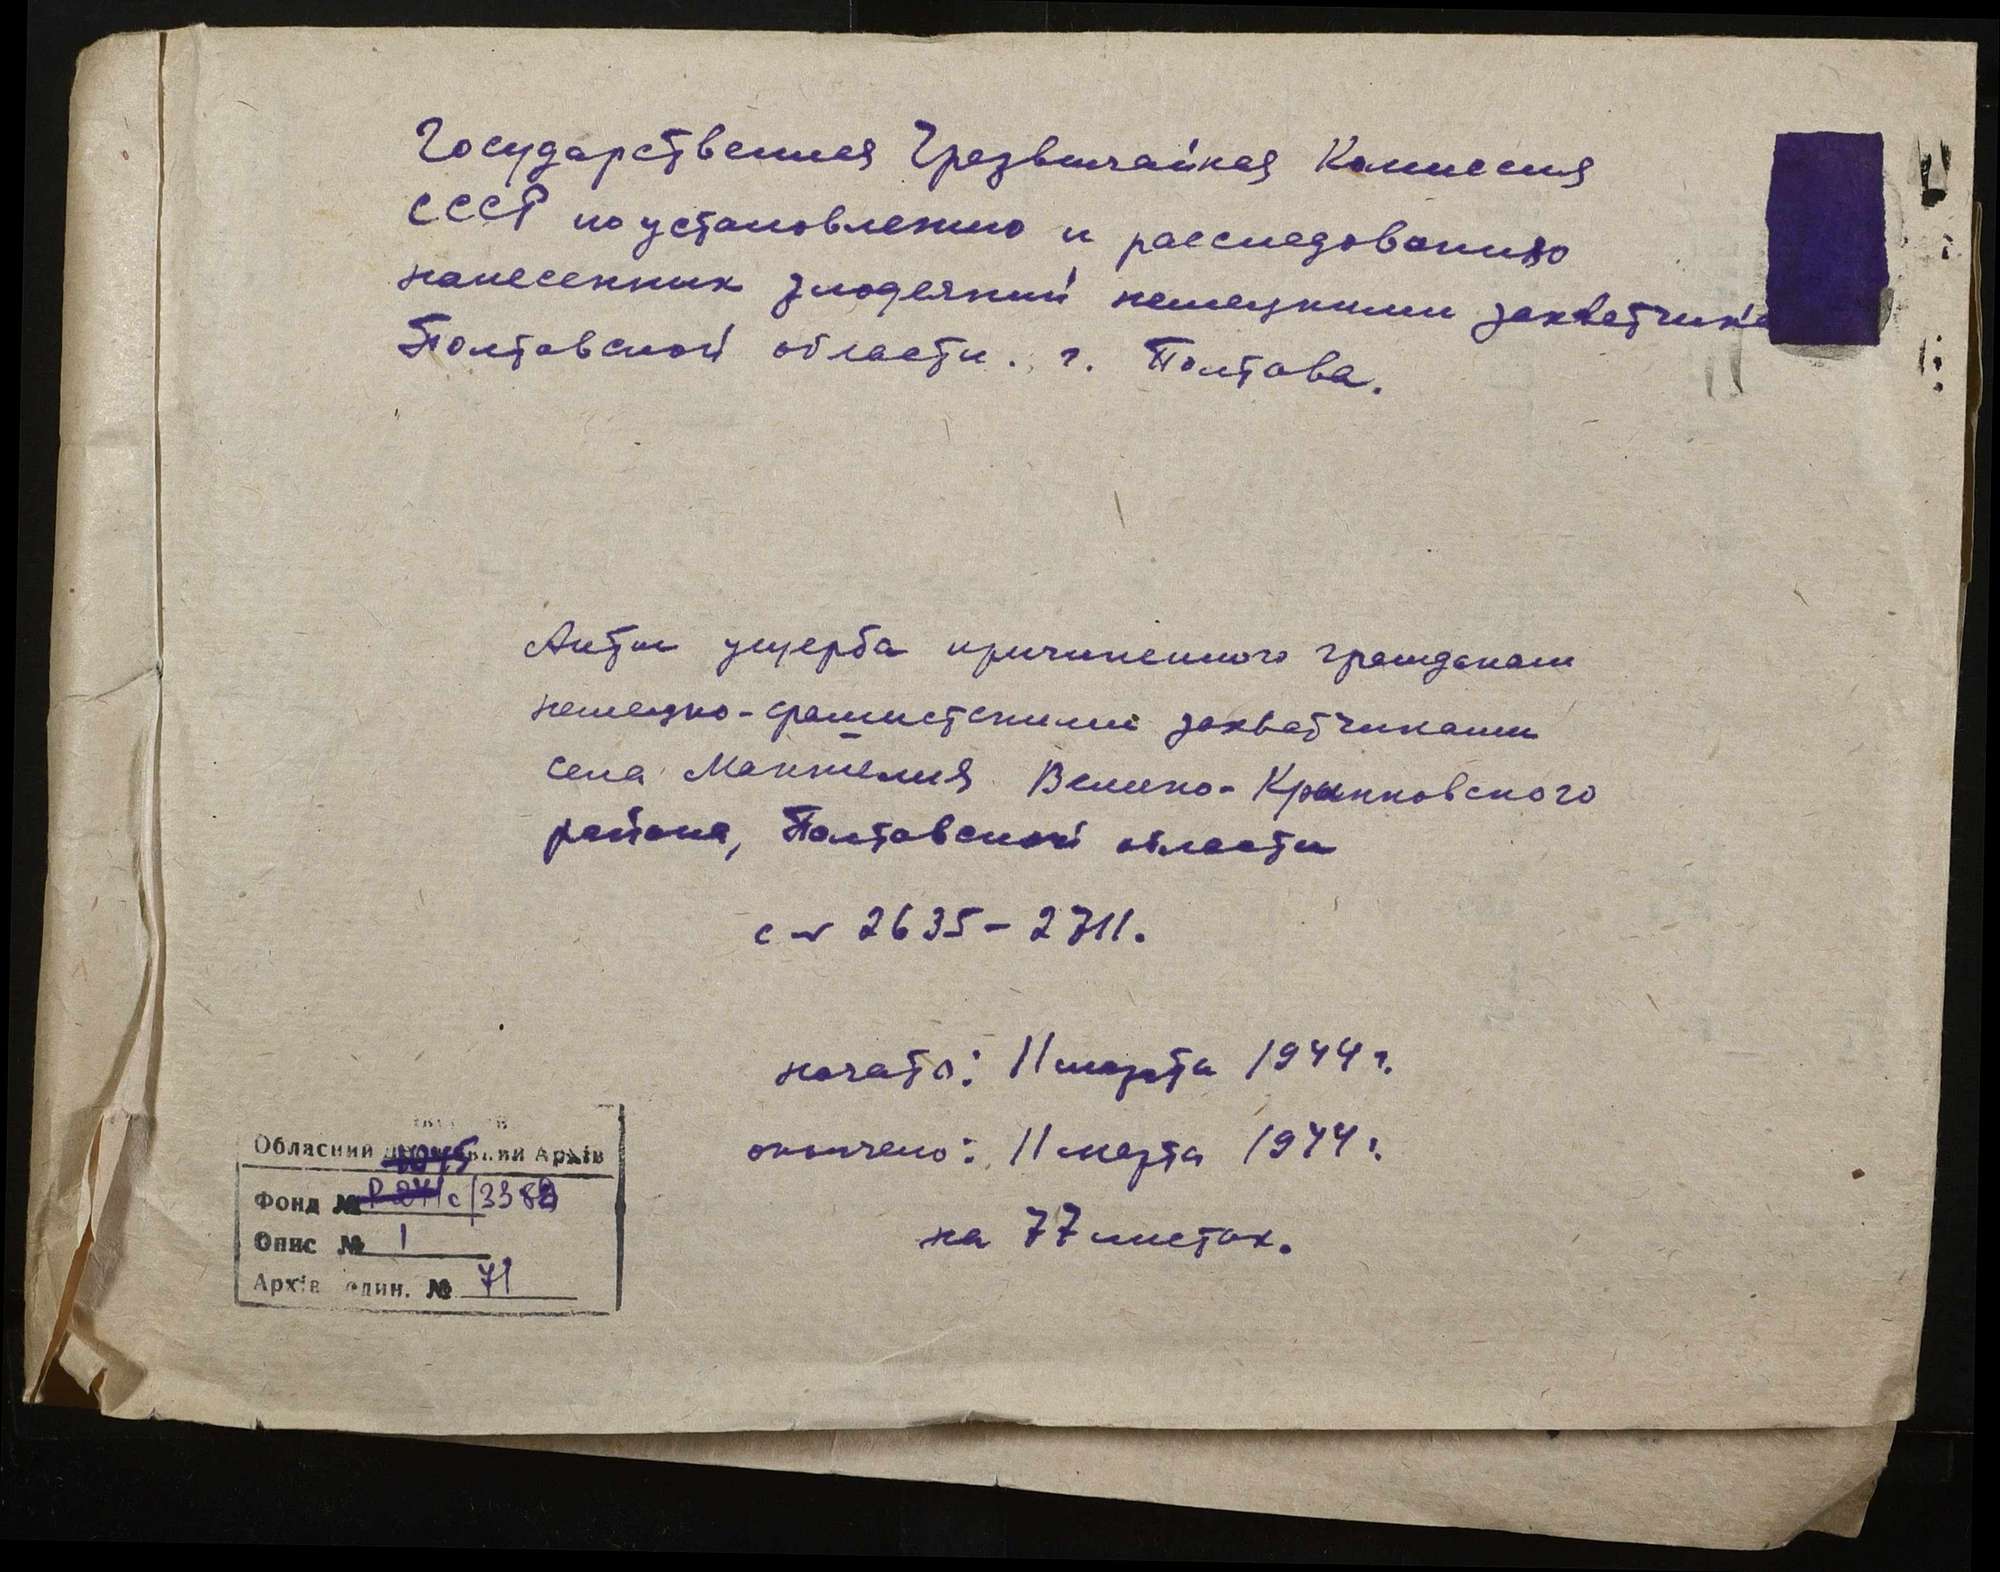 Государственная Чрезвычайная Комиссия
СССР по установлению и расследованию
нанесенных злодеяний немецкими захватчика
Полтавской области. г. Полтава.
Акты ущерба причиненного гражданам
немецко-фашистскими захватчиками
села Манжелия Велико-Крынковского
района, Полтавской области
с № 2635-2711.
начато: 11 марта 1944 г.
окончено: 11 марта 1944 г.
на 77 листах.
Обласний Державний Архів
Фонд № с/3388
Опис № 1
Архів един. № 71